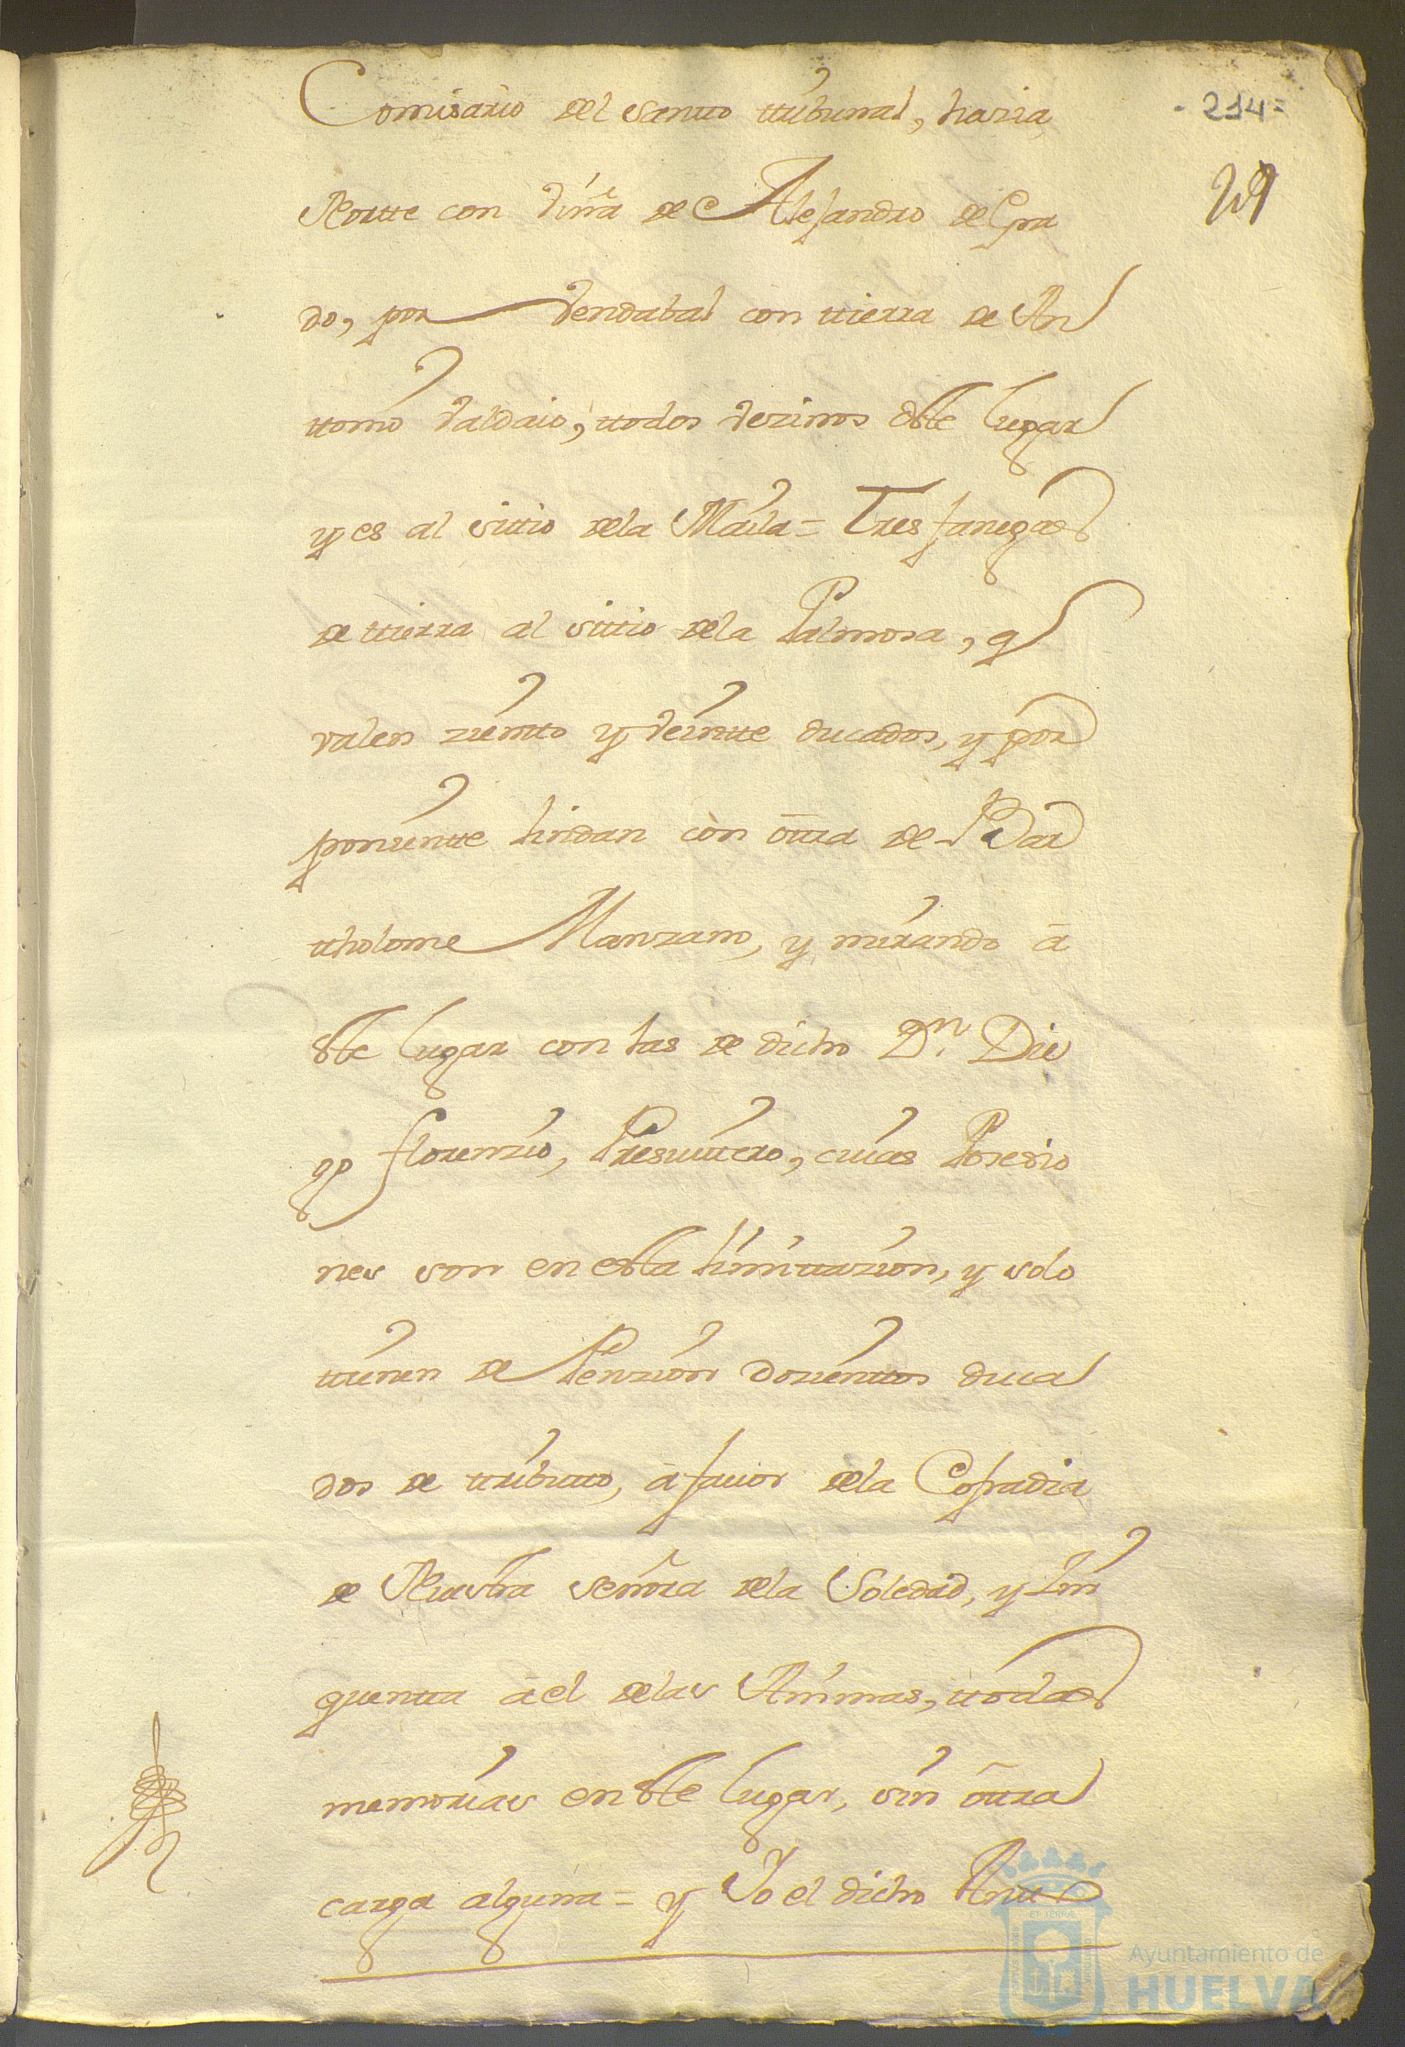 Comisario del santto ttribunal, hazia
- 214 =
Nortte con viña de Alejandro de Gra
do, por vendabal con ttierra de An
ttonio Valdaio, ttodos vezinos deste lugar
y es al sittio dela Maila = Tres fanegas
de ttierra al sittio dela Palmosa, q
valen zientto y veintte ducados, y por
ponientte lindan con ottra de Bar
ttholome Manzano, y mirando â
este lugar con las de dicho Dn. Die
go Florenzio, Presvittero, cuias Posesio
nes son en esta limittazion, y solo
ttienen de Penzion dozienttos duca
dos de ttributto, â favor dela Cofradia
de Nuestra señora dela Soledad, y sin
quentta â el delas Animas, ttodas
memorias en este lugar, sin ottra
carga alguna = y Yo el dicho
Ayuntamiento de
HUELVA